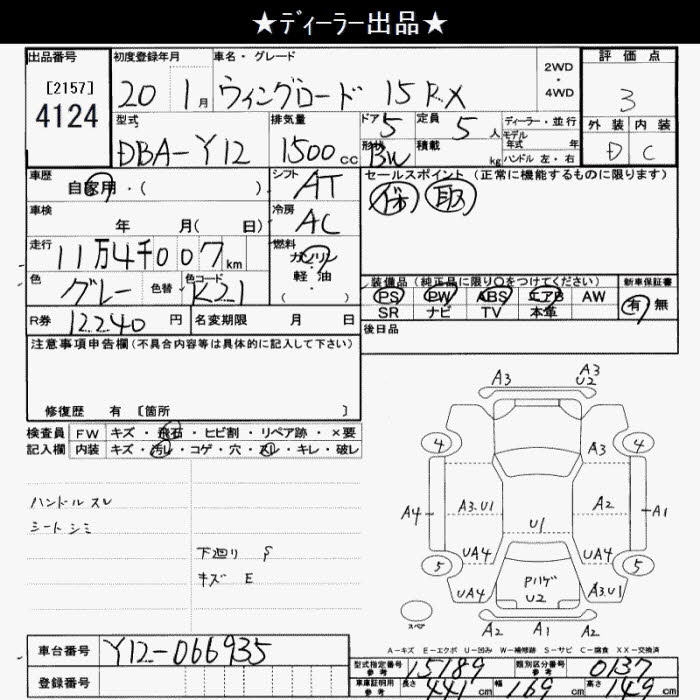 ★ディーラー出品★
出品番号
[2157]
4124
初度登録年月
20 1月
車名・グレード
ウィングロード 15RX
2WD
・
4WD
評価点
3
外装 内装
D C
型式
DBA-Y12
排気量
1500cc
ドア
5
定員
5人
形状
BW
積載
kg
ディーラー・並行
モデル
年式 年
ハンドル 左・右
車歴
自家用・( )
シフト
AT
セールスポイント (正常に機能するものに限ります)
保 取
車検
年 月( 日)
冷房
AC
走行
11万4千007km
燃料
ガソリン
軽油
( )
色
グレー
色替
色コード
K21
装備品 (純正品に限り○をつけてください)
PS PW ABS エアB AW
SR ナビ TV 本革
新車保証書
有 無
R券 12240円
名変期限 月 日
後日品
注意事項申告欄(不具合内容等は具体的に記入して下さい)
修復歴 有 [箇所 ]
検査員 FW キズ・飛石・ヒビ割・リペア跡・×要
記入欄 内装 キズ・汚れ・コゲ・穴・スレ・キレ・破レ
ハンドルスレ
シートシミ
下廻り S
キズ E
A3
A3
U2
4
4
A3
A4
A3.U1
A2
A1
U1
UA4
UA4
5
5
UA4
Pハゲ
U2
A3.U1
スペア
A2
A1
A2
A-キズ E-エクボ U-凹み W-補修跡 S-サビ C-腐食 XX-交換済
車台番号
Y12-066935
登録番号
型式指定番号
参考
15189
類別区分番号
参考
0137
車庫証明用
参考
長さ 441cm
幅 169cm
高さ 149cm